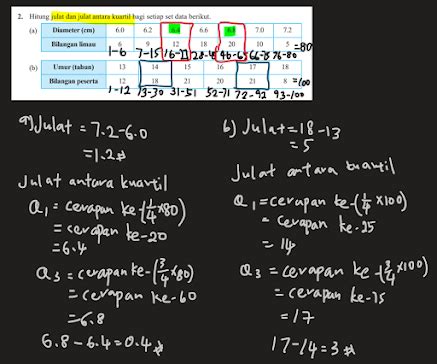 2. Hitung julat dan julat antara kuartil bagi setiap set data berikut.
(a) Diameter (cm) 6.0 6.2 6.4 6.6 6.8 7.0 7.2
Bilangan limau 6 9 12 18 20 10 5 =80
1-6 7-15 16-27 28-45 46-65 66-75 76-80
(b) Umur (tahun) 13 14 15 16 17 18
Bilangan peserta 12 18 21 20 21 8 =100
1-12 13-30 31-51 52-71 72-92 93-100
a) Julat = 7.2-6.0
=1.2
Julat antara kuartil
Q1 = cerapan ke-(1/4×80)
= cerapan ke-20
=6.4
Q3 = cerapan ke-(3/4×80)
= cerapan ke-60
=6.8
6.8-6.4=0.4
b) Julat=18-13
=5
Julat antara kuartil
Q1=cerapan ke-(1/4×100)
= cerapan ke-25
= 14
Q3 = cerapan ke-(3/4×100)
= cerapan ke-75
=17
17-14=3